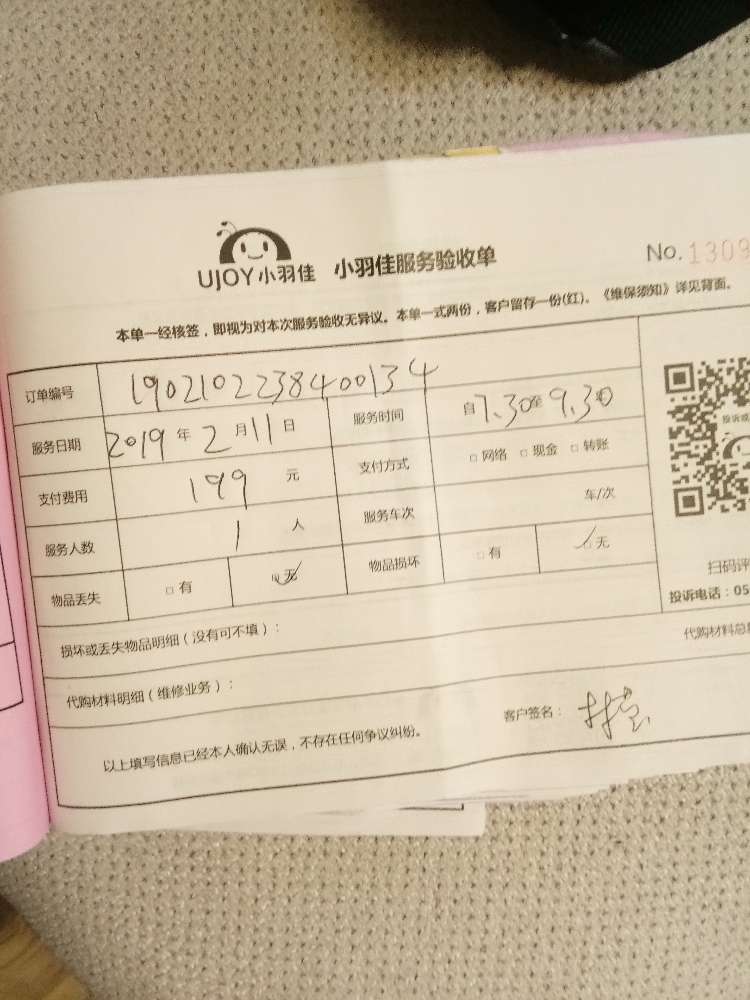 UJOY小羽佳 小羽佳服务验收单 No.1309
本单一经核签，即视为对本次服务验收无异议。本单一式两份，客户留存一份(红)。《维保须知》详见背面。
订单编号 1902102238400134
服务日期 2019年2月11日 服务时间 自7.30至9.30
支付费用 199元 支付方式 □网络 □现金 □转账
服务人数 1人 服务车次 车/次
物品丢失 □有 ☑无 物品损坏 □有 ☑无
投诉或
扫码评
投诉电话：05
损坏或丢失物品明细（没有可不填）：
代购材料明细（维修业务）： 代购材料总
以上填写信息已经本人确认无误，不存在任何争议纠纷。 客户签名：